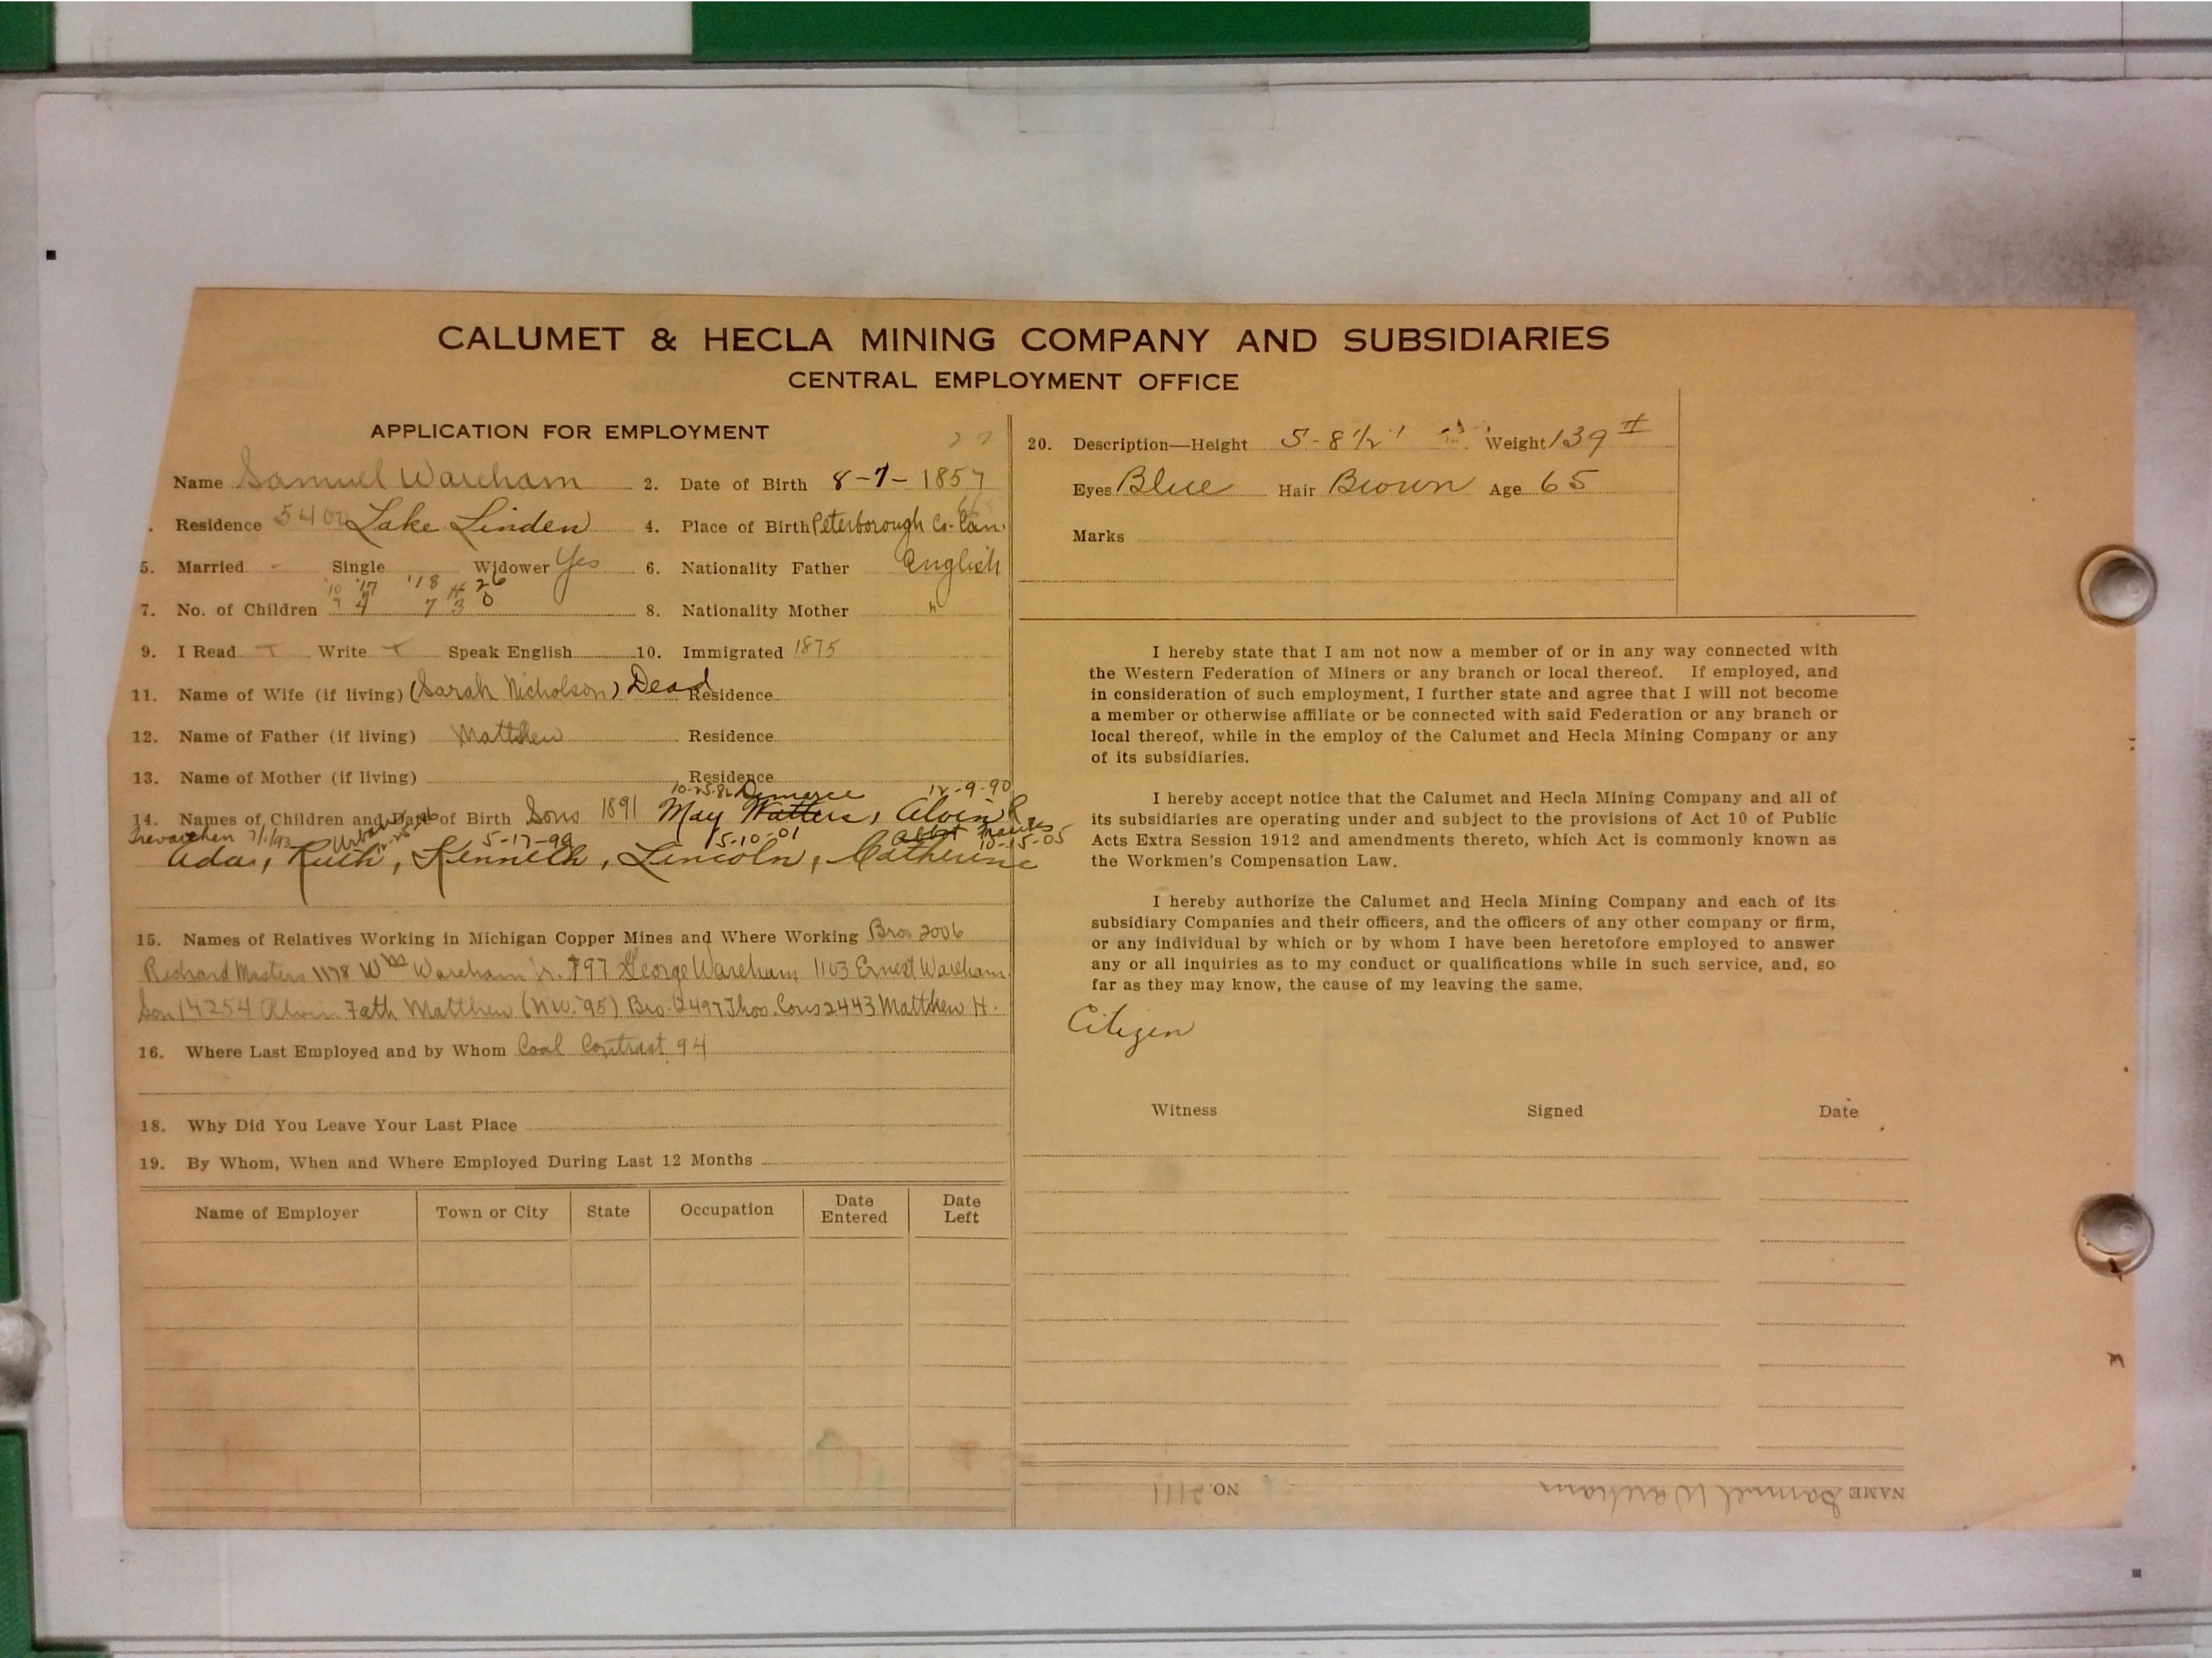 CALUMET & HECLA MINING COMPANY AND SUBSIDIARIES
CENTRAL EMPLOYMENT OFFICE
APPLICATION FOR EMPLOYMENT
Name Samuel Wareham 2. Date of Birth 8-7-1857
. Residence 5400 Lake Linden 4. Place of Birth Peterborough Co-Can.
5. Married Single Widower Yes 6. Nationality Father English
'10 '17 '18 26
7. No. of Children 7 4 7 3 0 8. Nationality Mother "
9. I Read Write Speak English 10. Immigrated 1875
11. Name of Wife (if living) (Sarah Nicholson) Dead Residence
12. Name of Father (if living) Matthew Residence
13. Name of Mother (if living) Residence
10-25-82 Demarce 12-9-90
14. Names of Children and Date of Birth Sons 1891 May Watters, Alvin R
Trevarthen 7/1/93 Urban 5-17-99 5-10-01 10-15-05
Ada, Ruth, Kenneth, Lincoln, Catherine
15. Names of Relatives Working in Michigan Copper Mines and Where Working Bros 2006
Richard Masters 1178 Wm Wareham Jr. 797 George Wareham, 1103 Ernest Wareham
Son 14254 Alvin Fath Matthew (NW. '95) Bro. 2497 Thos. Cous 2443 Matthew H.
16. Where Last Employed and by Whom Coal Contract 94
18. Why Did You Leave Your Last Place
19. By Whom, When and Where Employed During Last 12 Months
Name of Employer Town or City State Occupation Date Entered Date Left
20. Description—Height 5-8 1/2' Weight 139 #
Eyes Blue Hair Brown Age 65
Marks
I hereby state that I am not now a member of or in any way connected with
the Western Federation of Miners or any branch or local thereof. If employed, and
in consideration of such employment, I further state and agree that I will not become
a member or otherwise affiliate or be connected with said Federation or any branch or
local thereof, while in the employ of the Calumet and Hecla Mining Company or any
of its subsidiaries.
I hereby accept notice that the Calumet and Hecla Mining Company and all of
its subsidiaries are operating under and subject to the provisions of Act 10 of Public
Acts Extra Session 1912 and amendments thereto, which Act is commonly known as
the Workmen's Compensation Law.
I hereby authorize the Calumet and Hecla Mining Company and each of its
subsidiary Companies and their officers, and the officers of any other company or firm,
or any individual by which or by whom I have been heretofore employed to answer
any or all inquiries as to my conduct or qualifications while in such service, and, so
far as they may know, the cause of my leaving the same.
Citizen
Witness Signed Date
NAME Samuel Wareham NO. 2111